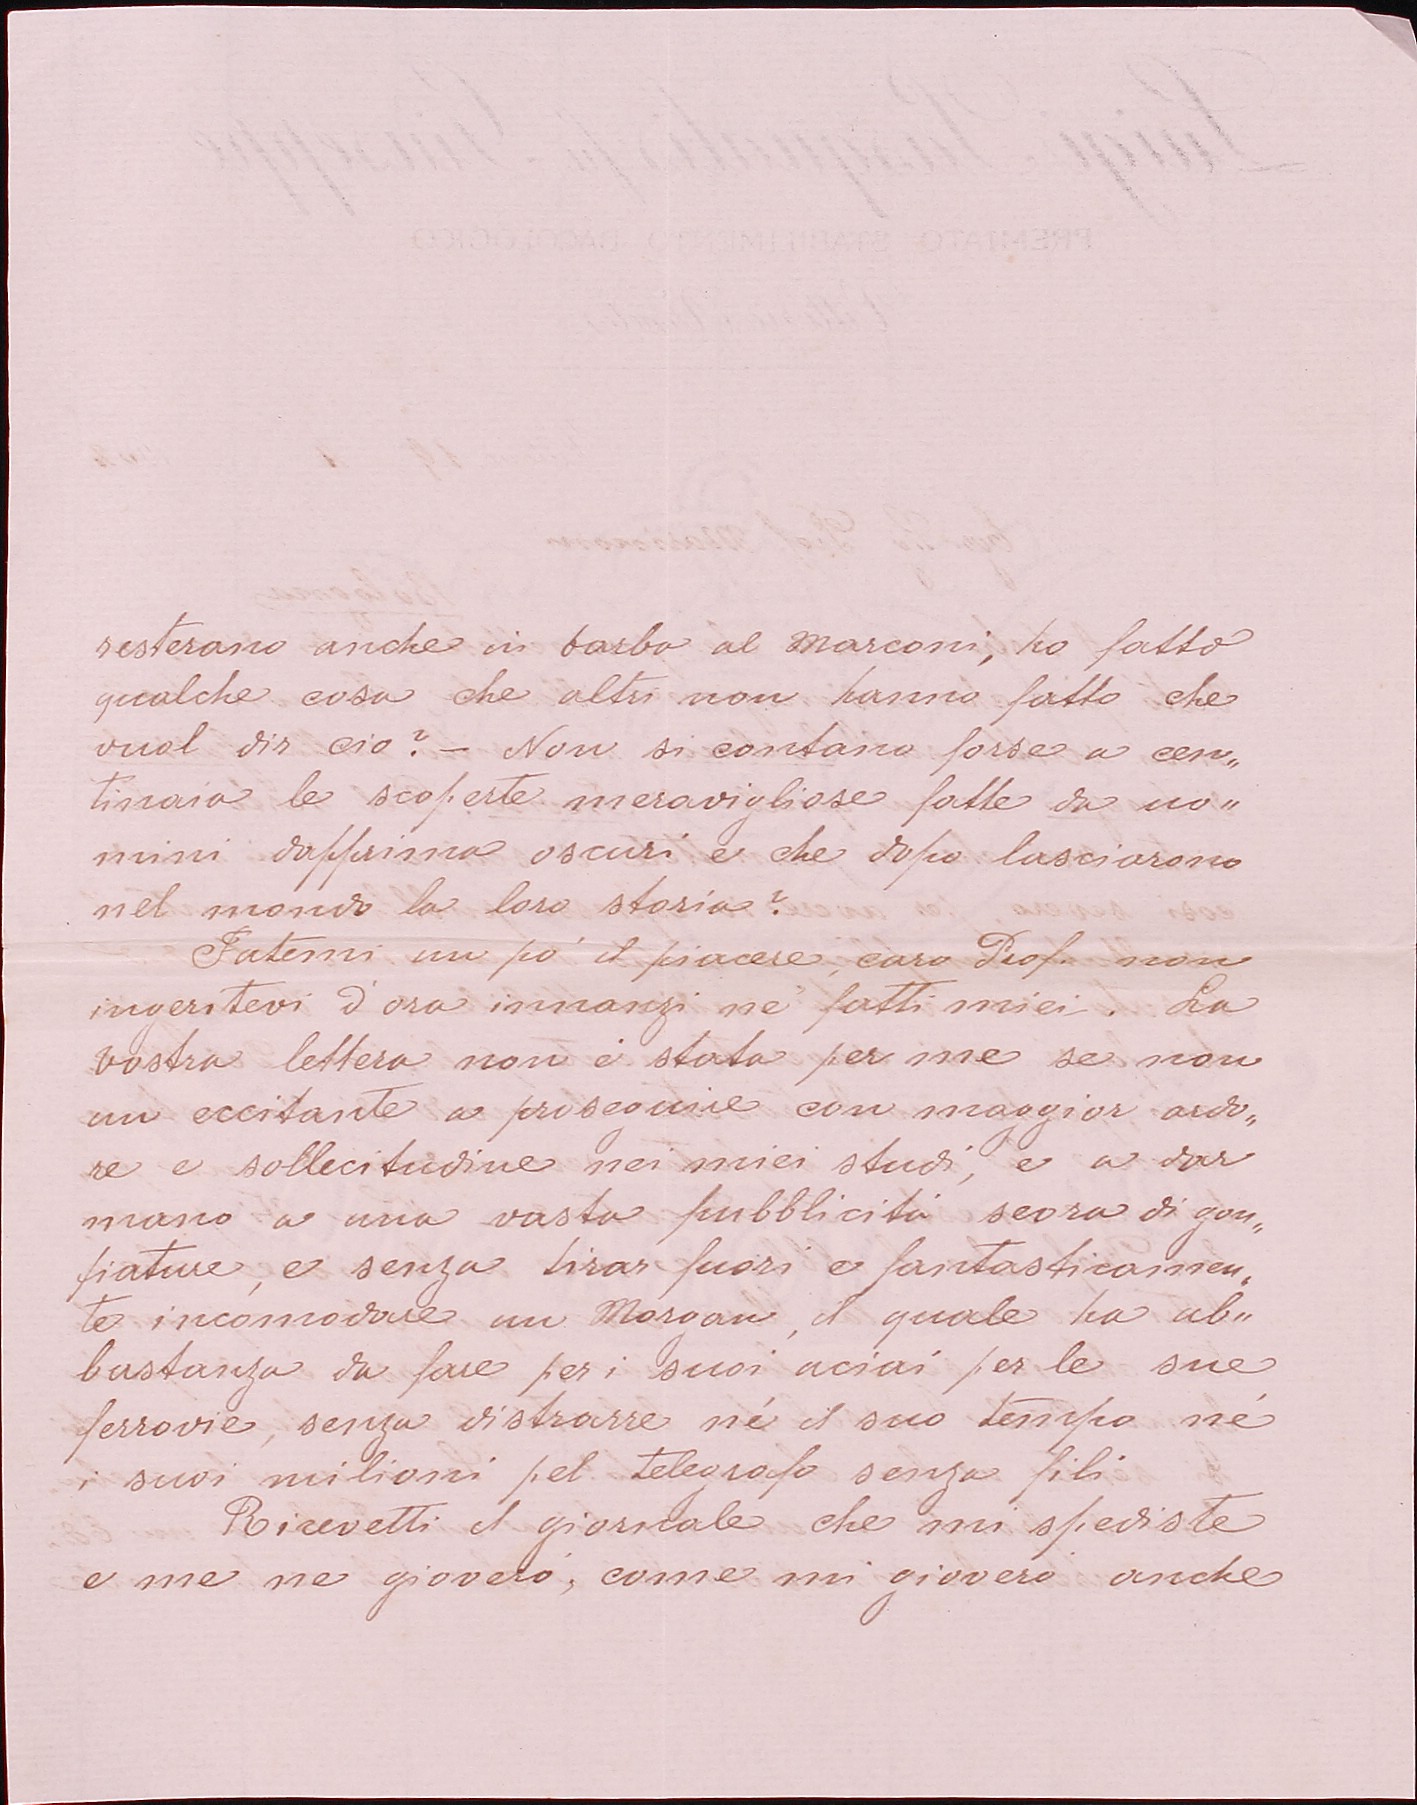 resterano anche in barba al Marconi, ho fatto
qualche cosa che altri non hanno fatto che
vuol dir cio? — Non si contano forse a cen„
tinaia le scoperte meravigliose fatte da uo„
mini dapprima oscuri e che dopo lasciarono
nel mondo la loro storia?
Fatemi un pò il piacere, caro Prof. non
ingeritevi d'ora innanzi ne' fatti miei. La
vostra lettera non è stata per me se non
un eccitante a proseguire con maggior ardo„
re e sollecitudine nei miei studi, e a dar
mano a una vasta pubblicità sevra di gon„
fiature, e senza tirar fuori e fantasticamen„
te incomodare un Morgan, il quale ha ab„
bastanza da fare per i suoi aciai per le sue
ferrovie, senza distrarre né il suo tempo né
i suoi milioni pel telegrafo senza fili.
Ricevetti il giornale che mi spediste
e me ne gioverò, come mi gioverò anche